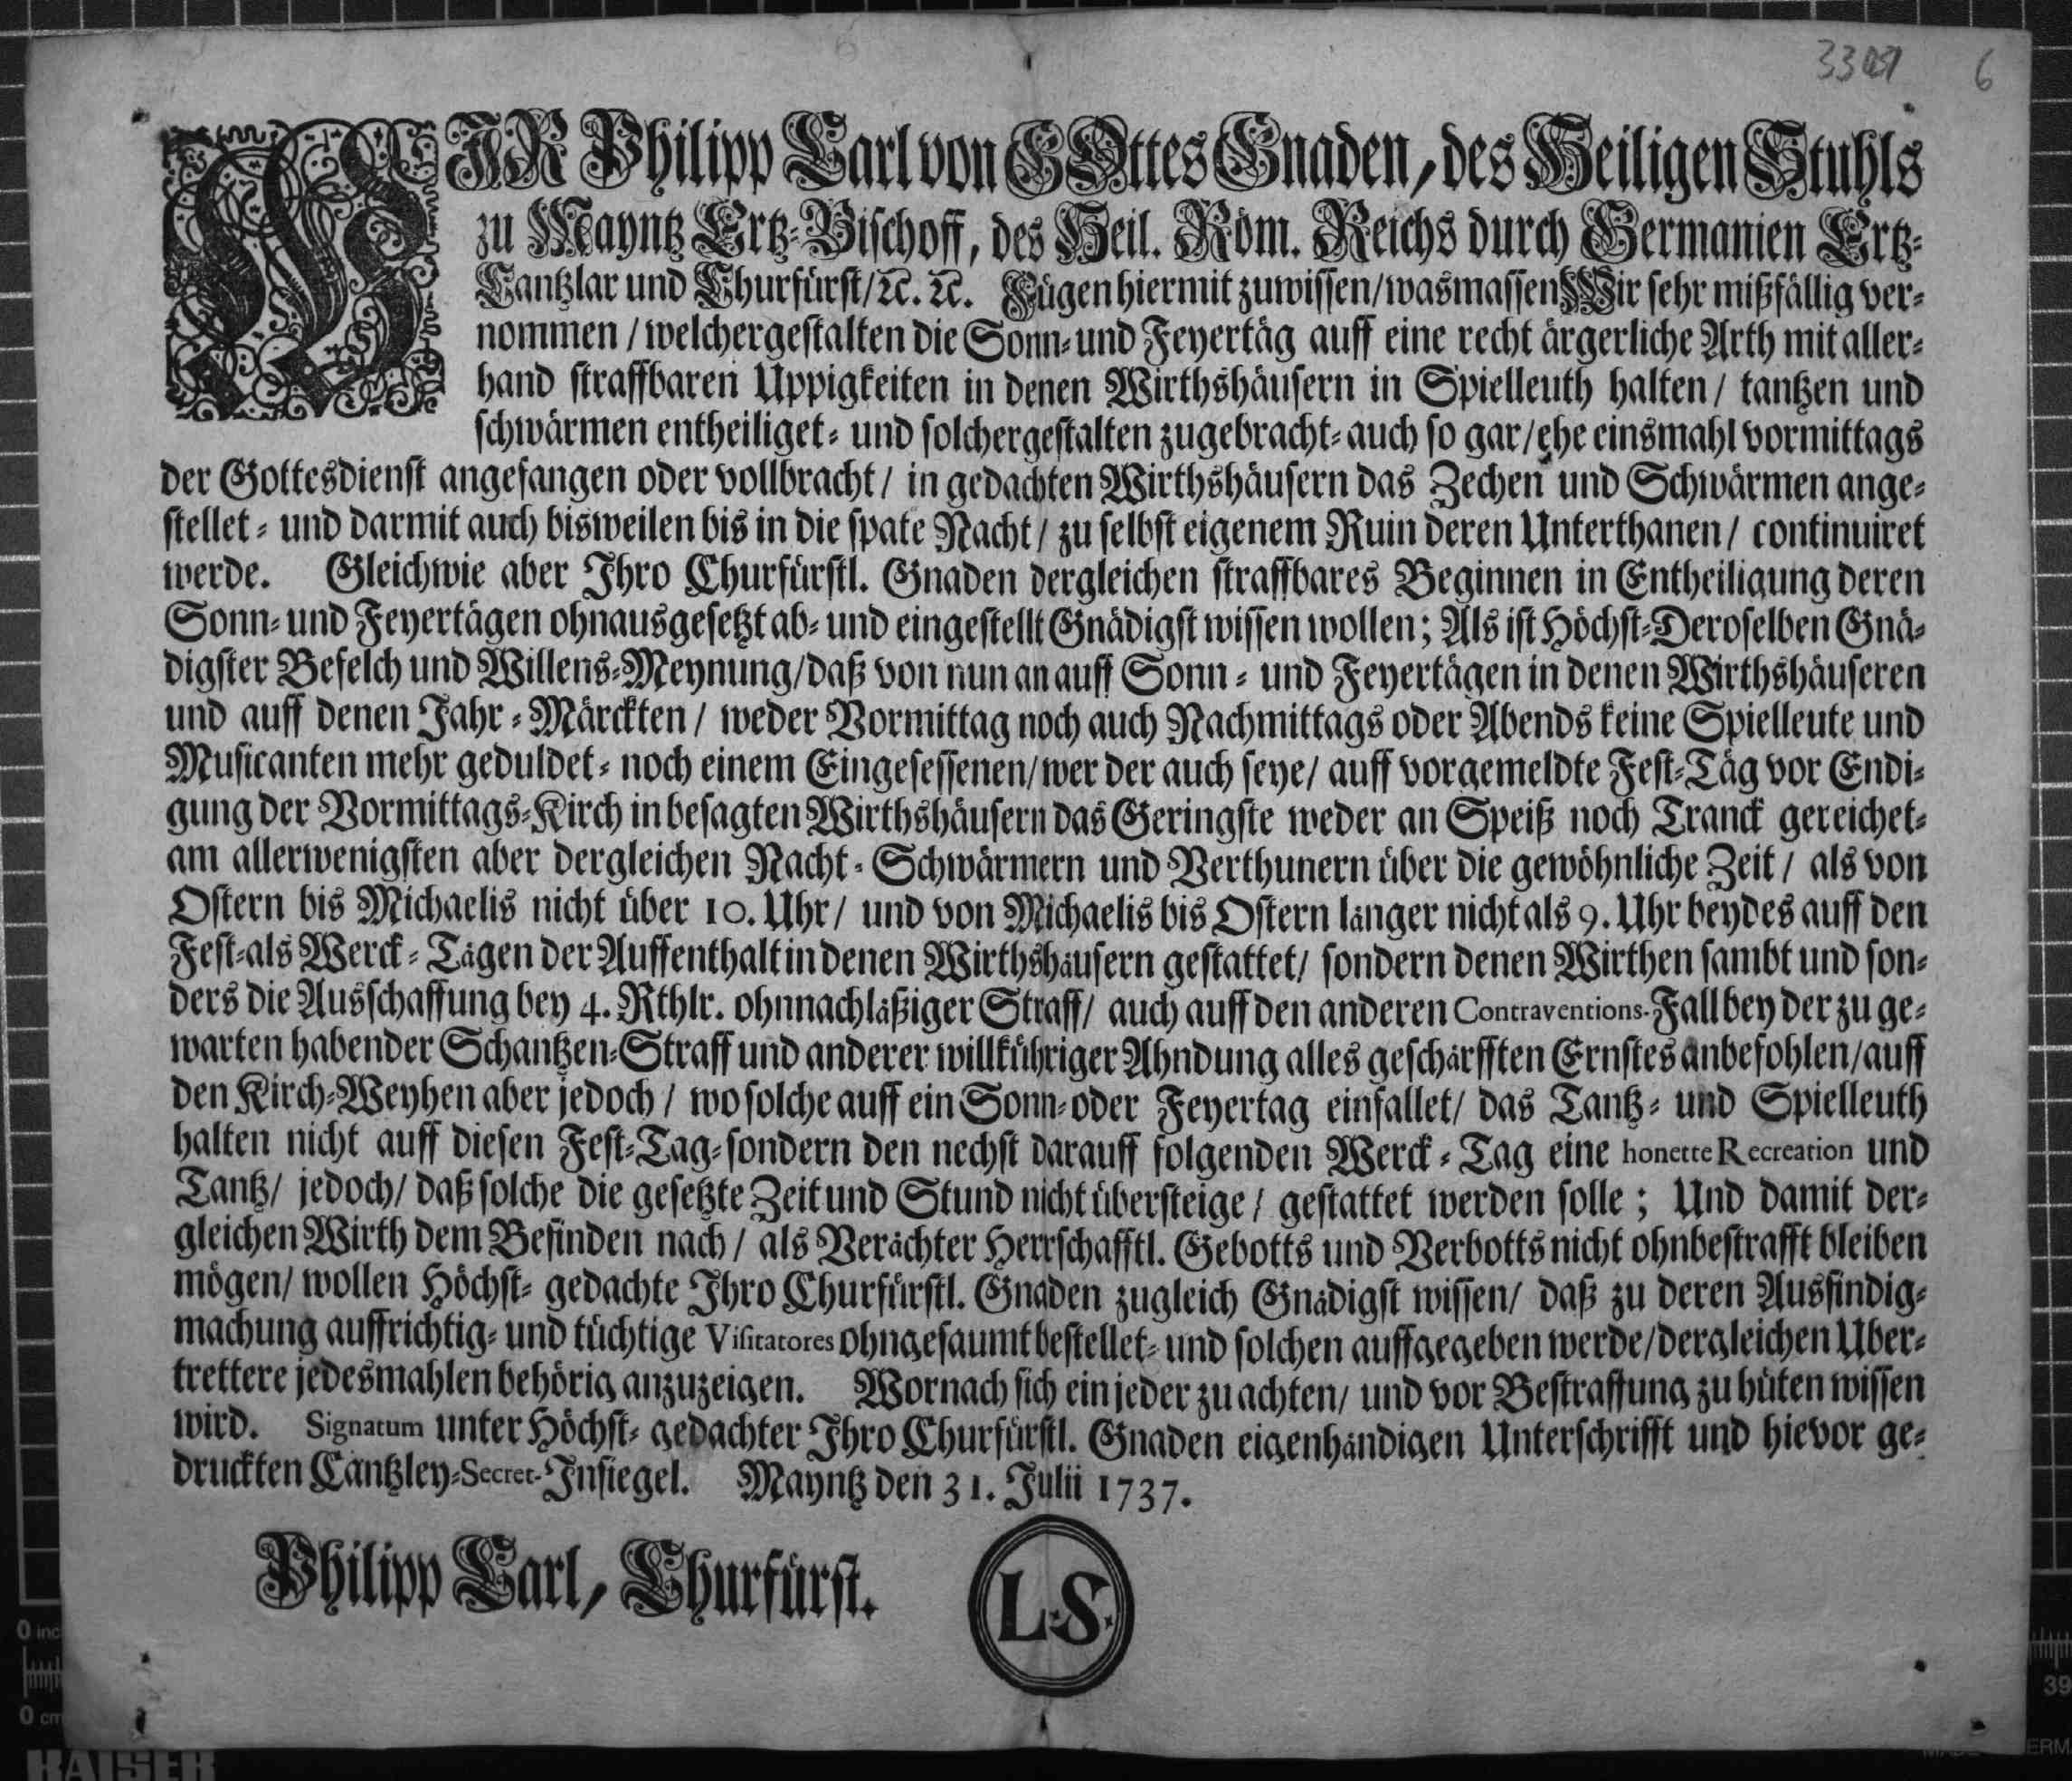 3301 6
WJR Philipp Carl von GOttes Gnaden, des Heiligen Stuhls
zu Mayntz Ertz-Bischoff, des Heil. Röm. Reichs durch Germanien Ertz-
Cantzlar und Churfürst/ ꝛc. ꝛc. Fügen hiermit zuwissen/ wasmassen Wir sehr mißfällig ver-
nommen / welchergestalten die Sonn- und Feyertäg auff eine recht ärgerliche Arth mit aller-
hand straffbaren Uppigkeiten in denen Wirthshäusern in Spielleuth halten / tantzen und
schwärmen entheiliget- und solchergestalten zugebracht- auch so gar/ ehe einsmahl vormittags
der Gottesdienst angefangen oder vollbracht / in gedachten Wirthshäusern das Zechen und Schwärmen ange-
stellet - und darmit auch bisweilen bis in die spate Nacht / zu selbst eigenem Ruin deren Unterthanen / continuiret
werde. Gleichwie aber Jhro Churfürstl. Gnaden dergleichen straffbares Beginnen in Entheiligung deren
Sonn- und Feyertägen ohnausgesetzt ab- und eingestellt Gnädigst wissen wollen; Als ist Höchst-Deroselben Gnä-
digster Befelch und Willens-Meynung/ daß von nun an auff Sonn - und Feyertägen in denen Wirthshäuseren
und auff denen Jahr - Märckten / weder Vormittag noch auch Nachmittags oder Abends keine Spielleute und
Musicanten mehr geduldet - noch einem Eingesessenen/ wer der auch seye/ auff vorgemeldte Fest-Täg vor Endi-
gung der Vormittags-Kirch in besagten Wirthshäusern das Geringste weder an Speiß noch Tranck gereichet-
am allerwenigsten aber dergleichen Nacht - Schwärmern und Verthunern über die gewöhnliche Zeit / als von
Ostern bis Michaelis nicht über 10. Uhr/ und von Michaelis bis Ostern länger nicht als 9. Uhr beydes auff den
Fest-als Werck - Tägen der Auffenthalt in denen Wirthshäusern gestattet/ sondern denen Wirthen sambt und son-
ders die Ausschaffung bey 4. Rthlr. ohnnachläßiger Straff/ auch auff den anderen Contraventions-Fall bey der zu ge-
warten habender Schantzen-Straff und anderer willkühriger Ahndung alles geschärfften Ernstes anbefohlen/ auff
den Kirch-Weyhen aber jedoch / wo solche auff ein Sonn-oder Feyertag einfallet/ das Tantz - und Spielleuth
halten nicht auff diesen Fest-Tag-sondern den nechst darauff folgenden Werck - Tag eine honette Recreation und
Tantz/ jedoch/ daß solche die gesetzte Zeit und Stund nicht übersteige / gestattet werden solle ; Und damit der-
gleichen Wirth dem Befinden nach / als Verächter Herrschafftl. Gebotts und Verbotts nicht ohnbestrafft bleiben
mögen/ wollen Höchst- gedachte Jhro Churfürstl. Gnaden zugleich Gnädigst wissen/ daß zu deren Ausfindig-
machung auffrichtig- und tüchtige Visitatores ohngesaumt bestellet- und solchen auffgegeben werde/ dergleichen Uber-
trettere jedesmahlen behörig anzuzeigen. Wornach sich ein jeder zu achten/ und vor Bestraffung zu hüten wissen
wird. Signatum unter Höchst- gedachter Jhro Churfürstl. Gnaden eigenhändigen Unterschrifft und hievor ge-
druckten Cantzley-Secret-Jnsiegel. Mayntz den 31. Julii 1737.
Philipp Carl, Churfürst.
L.S.
0 inc
0 cm
39
KAISER